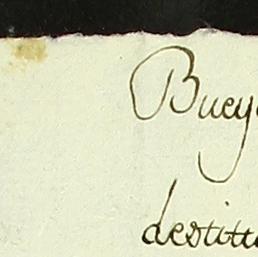 Buey
destitu